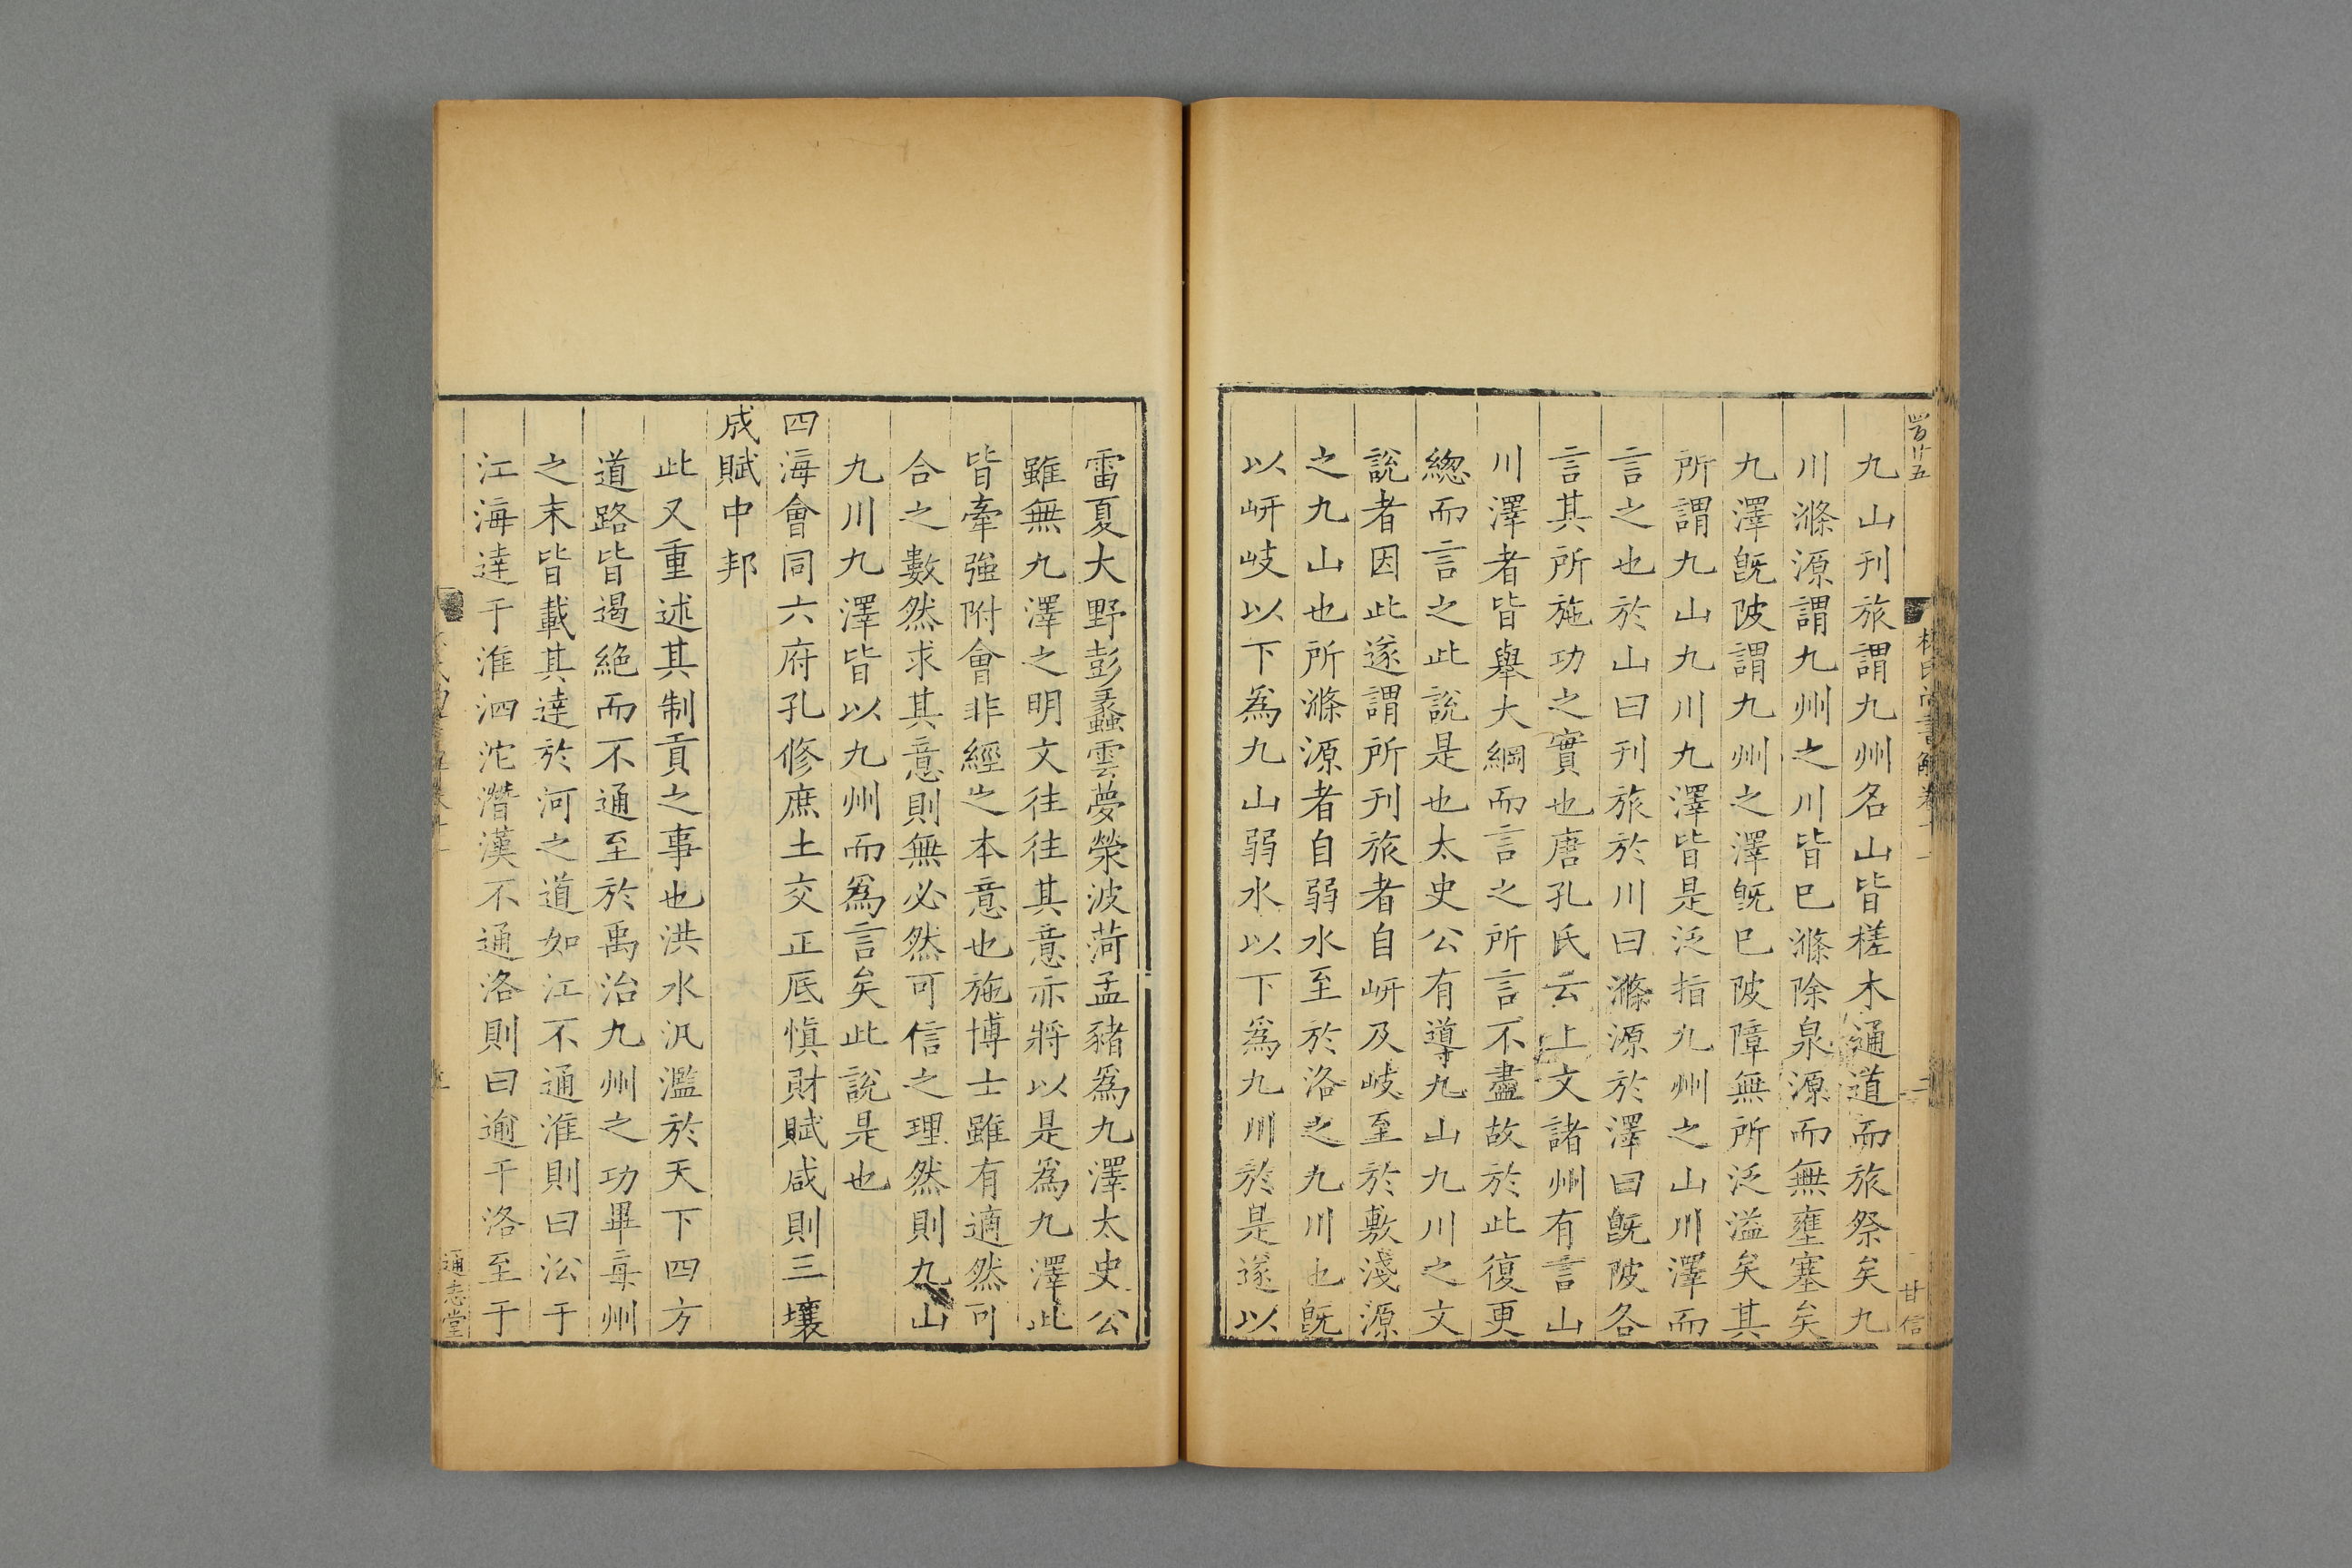 林氏尚書解卷十一
二
甘信
九山刊旅謂九州名山皆槎木通道而旅祭矣九
川滌源謂九州之川皆巳滌除泉源而無壅塞矣
九澤旣陂謂九州之澤旣巳陂障無所泛溢矣其
所謂九山九川九澤皆是泛指九州之山川澤而
言之也於山曰刊旅於川曰滌源於澤曰旣陂各
言其所施功之實也唐孔氏云上文諸州有言山
川澤者皆舉大綱而言之所言不盡故於此復更
緫而言之此說是也太史公有導九山九川之文
說者因此遂謂所刊旅者自岍及岐至於敷淺源
之九山也所滌源者自弱水至於洛之九川也旣
以岍岐以下爲九山弱水以下爲九川於是遂以
雷夏大野彭蠡雲夢滎波菏孟豬爲九澤太史公
雖無九澤之明文往往其意亦將以是爲九澤此
皆牽強附會非經之本意也施博士雖有適然可
合之數然求其意則無必然可信之理然則九山
九川九澤皆以九州而爲言矣此說是也
四海會同六府孔修庶土交正厎愼財賦咸則三壤
成賦中邦
此又重述其制貢之事也洪水汎濫於天下四方
道路皆遏絶而不通至於禹治九州之功畢每州
之末皆載其達於河之道如江不通淮則曰沿于
江海達于淮泗沱潛漢不通洛則曰逾于洛至于
通志堂